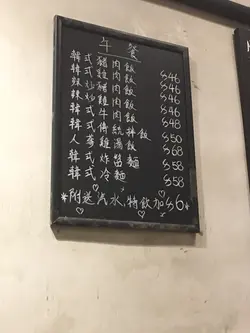 午餐
韓式豬肉飯 $46
韓式雞肉飯 $46
辣炒豬肉飯 $46
辣炒雞肉飯 $46
韓式牛肉飯 $48
韓式傳統拌飯 $50
人蔘雞湯飯 $68
韓式炸醬麵 $58
韓式冷麵 $58
*附送汽水,特飲加$6*